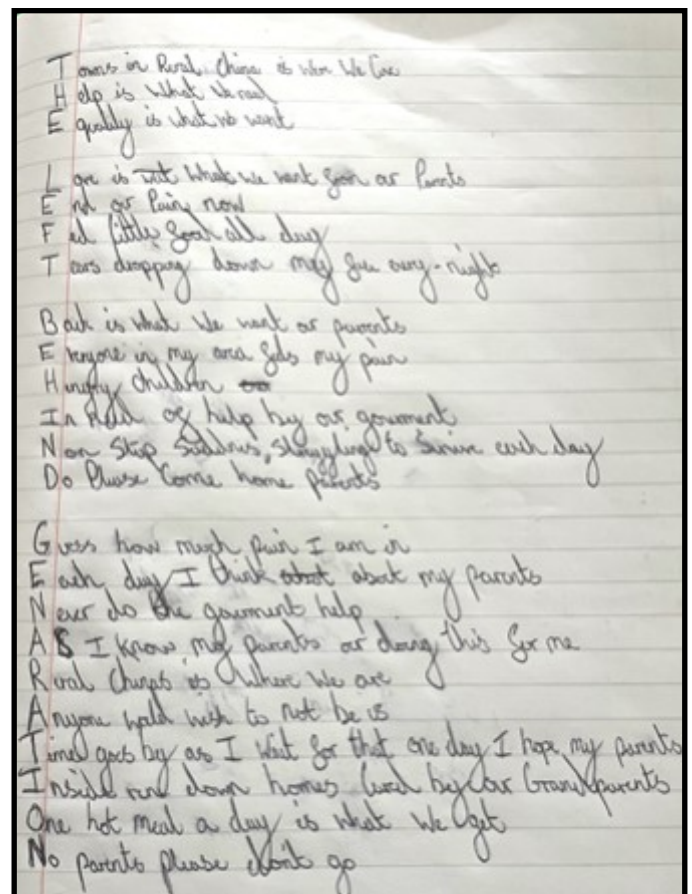 Towns in Rural China is were We live
Help is What We need
Equality is what we want
Love is what we want from our Parents
End our Pain now
Fed little food all day
Tears dropping down my face every-night
Back is what We want our parents
Everyone in my area feels my pain
Hungry children
In need of help by our goverment
Non Stop Saddnes, struggling to Survive each day
Do Please Come home parents
Guess how much pain I am in
Each day I think about my parents
Never do the goverment help
AS I know my parents are doing this for me
Rural China is Where We are
Anyone would wish to not be us
Time goes by as I wait for that one day I hope my parents
Inside run down homes cared by our Grandparents
One hot meal a day is what We get
No parents please don't go